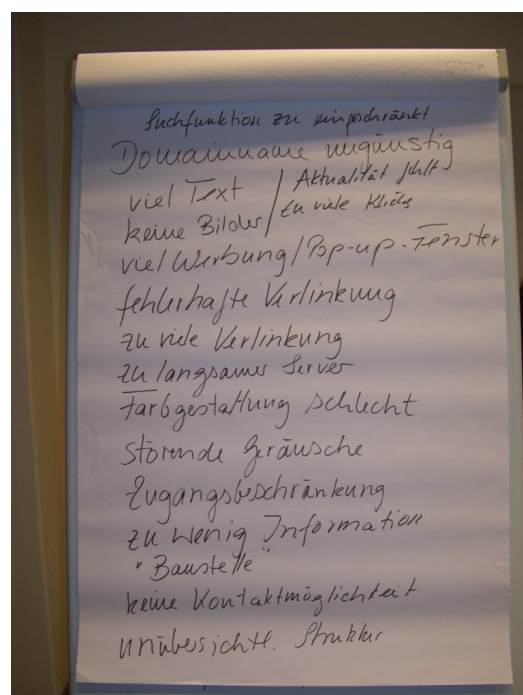 Suchfunktion zu eingeschränkt
Domainname ungünstig
viel Text / Aktualität fehlt
keine Bilder / zu viele Klicks
viel Werbung / Pop-up-Fenster
fehlerhafte Verlinkung
zu viele Verlinkung
zu langsamer Server
Farbgestaltung schlecht
störende Geräusche
Zugangsbeschränkung
zu wenig Information
"Baustelle"
keine Kontaktmöglichkeit
unübersichtl. Struktur